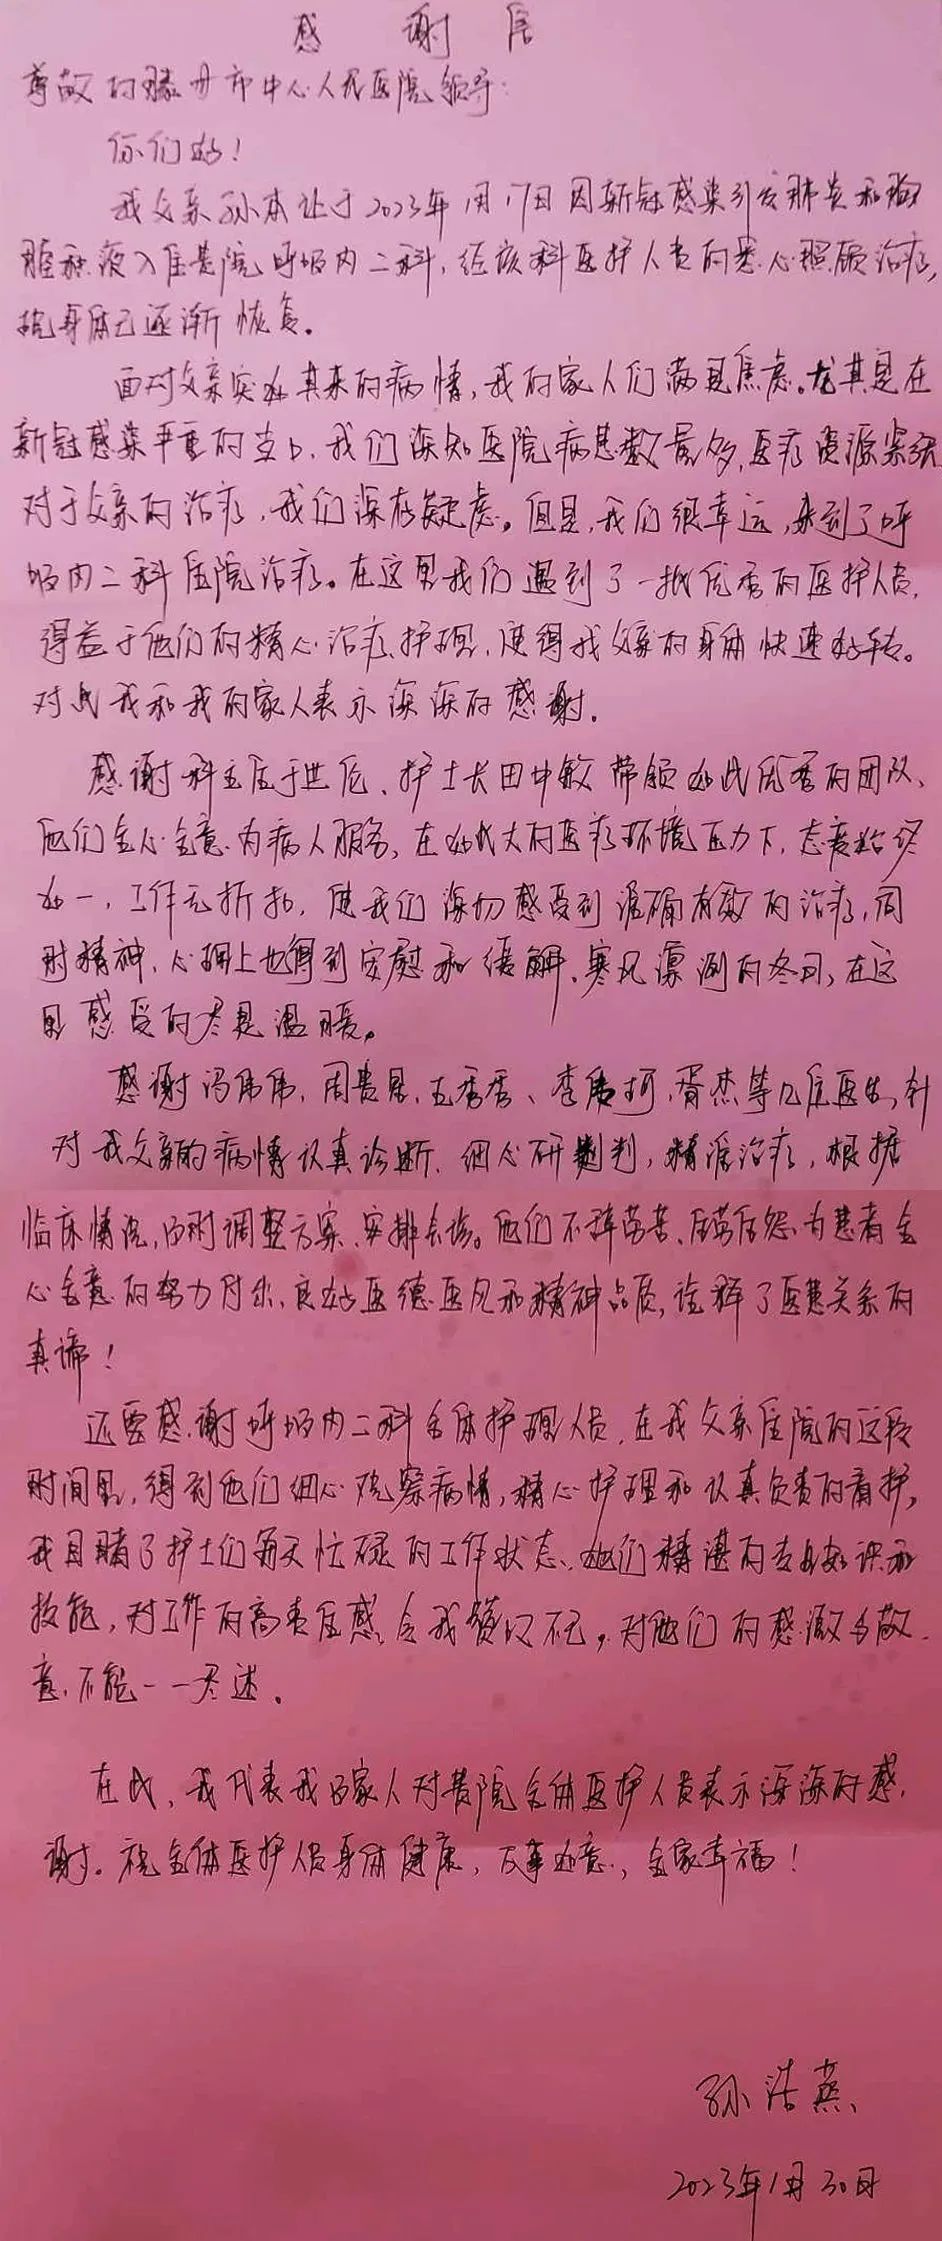 感谢信
尊敬的滕州市中心人民医院领导:
你们好!
我父亲孙本让于2023年1月17日因新冠感染引发肺炎和胸
腔积液入住贵院呼吸内二科,经该科医护人员的悉心照顾治疗,
现身体已逐渐恢复。
面对父亲突如其来的病情,我的家人们满是焦虑。尤其是在
新冠感染严重的当口,我们深知医院病患数量多,医疗资源紧张
对于父亲的治疗,我们深存疑虑。但是,我们很幸运,来到了呼
吸内二科住院治疗。在这里我们遇到了一批优秀的医护人员,
得益于他们的精心治疗、护理,使得我父亲的身体快速好转。
对此我和我的家人表示深深的感谢。
感谢科主任于世伦、护士长田中敏带领如此优秀的团队、
他们全心全意为病人服务,在如此大的医疗环境压力下,态度始终
如一,工作无折扣,使我们深切感受到准确有效的治疗,同
时精神、心理上也得到安慰和缓解、寒风凛冽的冬日,在这
里感受的尽是温暖。
感谢冯伟伟,周贵星,王秀秀、李广珂,胥杰等几位医生,针
对我父亲的病情认真诊断、细心研判,精准治疗,根据
临床情况,及时调整方案、安排会诊。他们不辞劳苦、任劳任怨、为患者全
心全意的努力付出,良好医德医风和精神品质,诠释了医患关系的
真谛!
还要感谢呼吸内二科全体护理人员,在我父亲住院的这段
时间里,得到他们细心观察病情,精心护理和认真负责的看护,
我目睹了护士们每天忙碌的工作状态、她们精湛的专业知识和
技能,对工作的高责任感,令我赞叹不已,对他们的感激与敬
意,不能一一尽述。
在此,我代表我的家人对贵院全体医护人员表示深深的感
谢。祝全体医护人员身体健康,万事如意,全家幸福!
孙浩燕
2023年1月30日